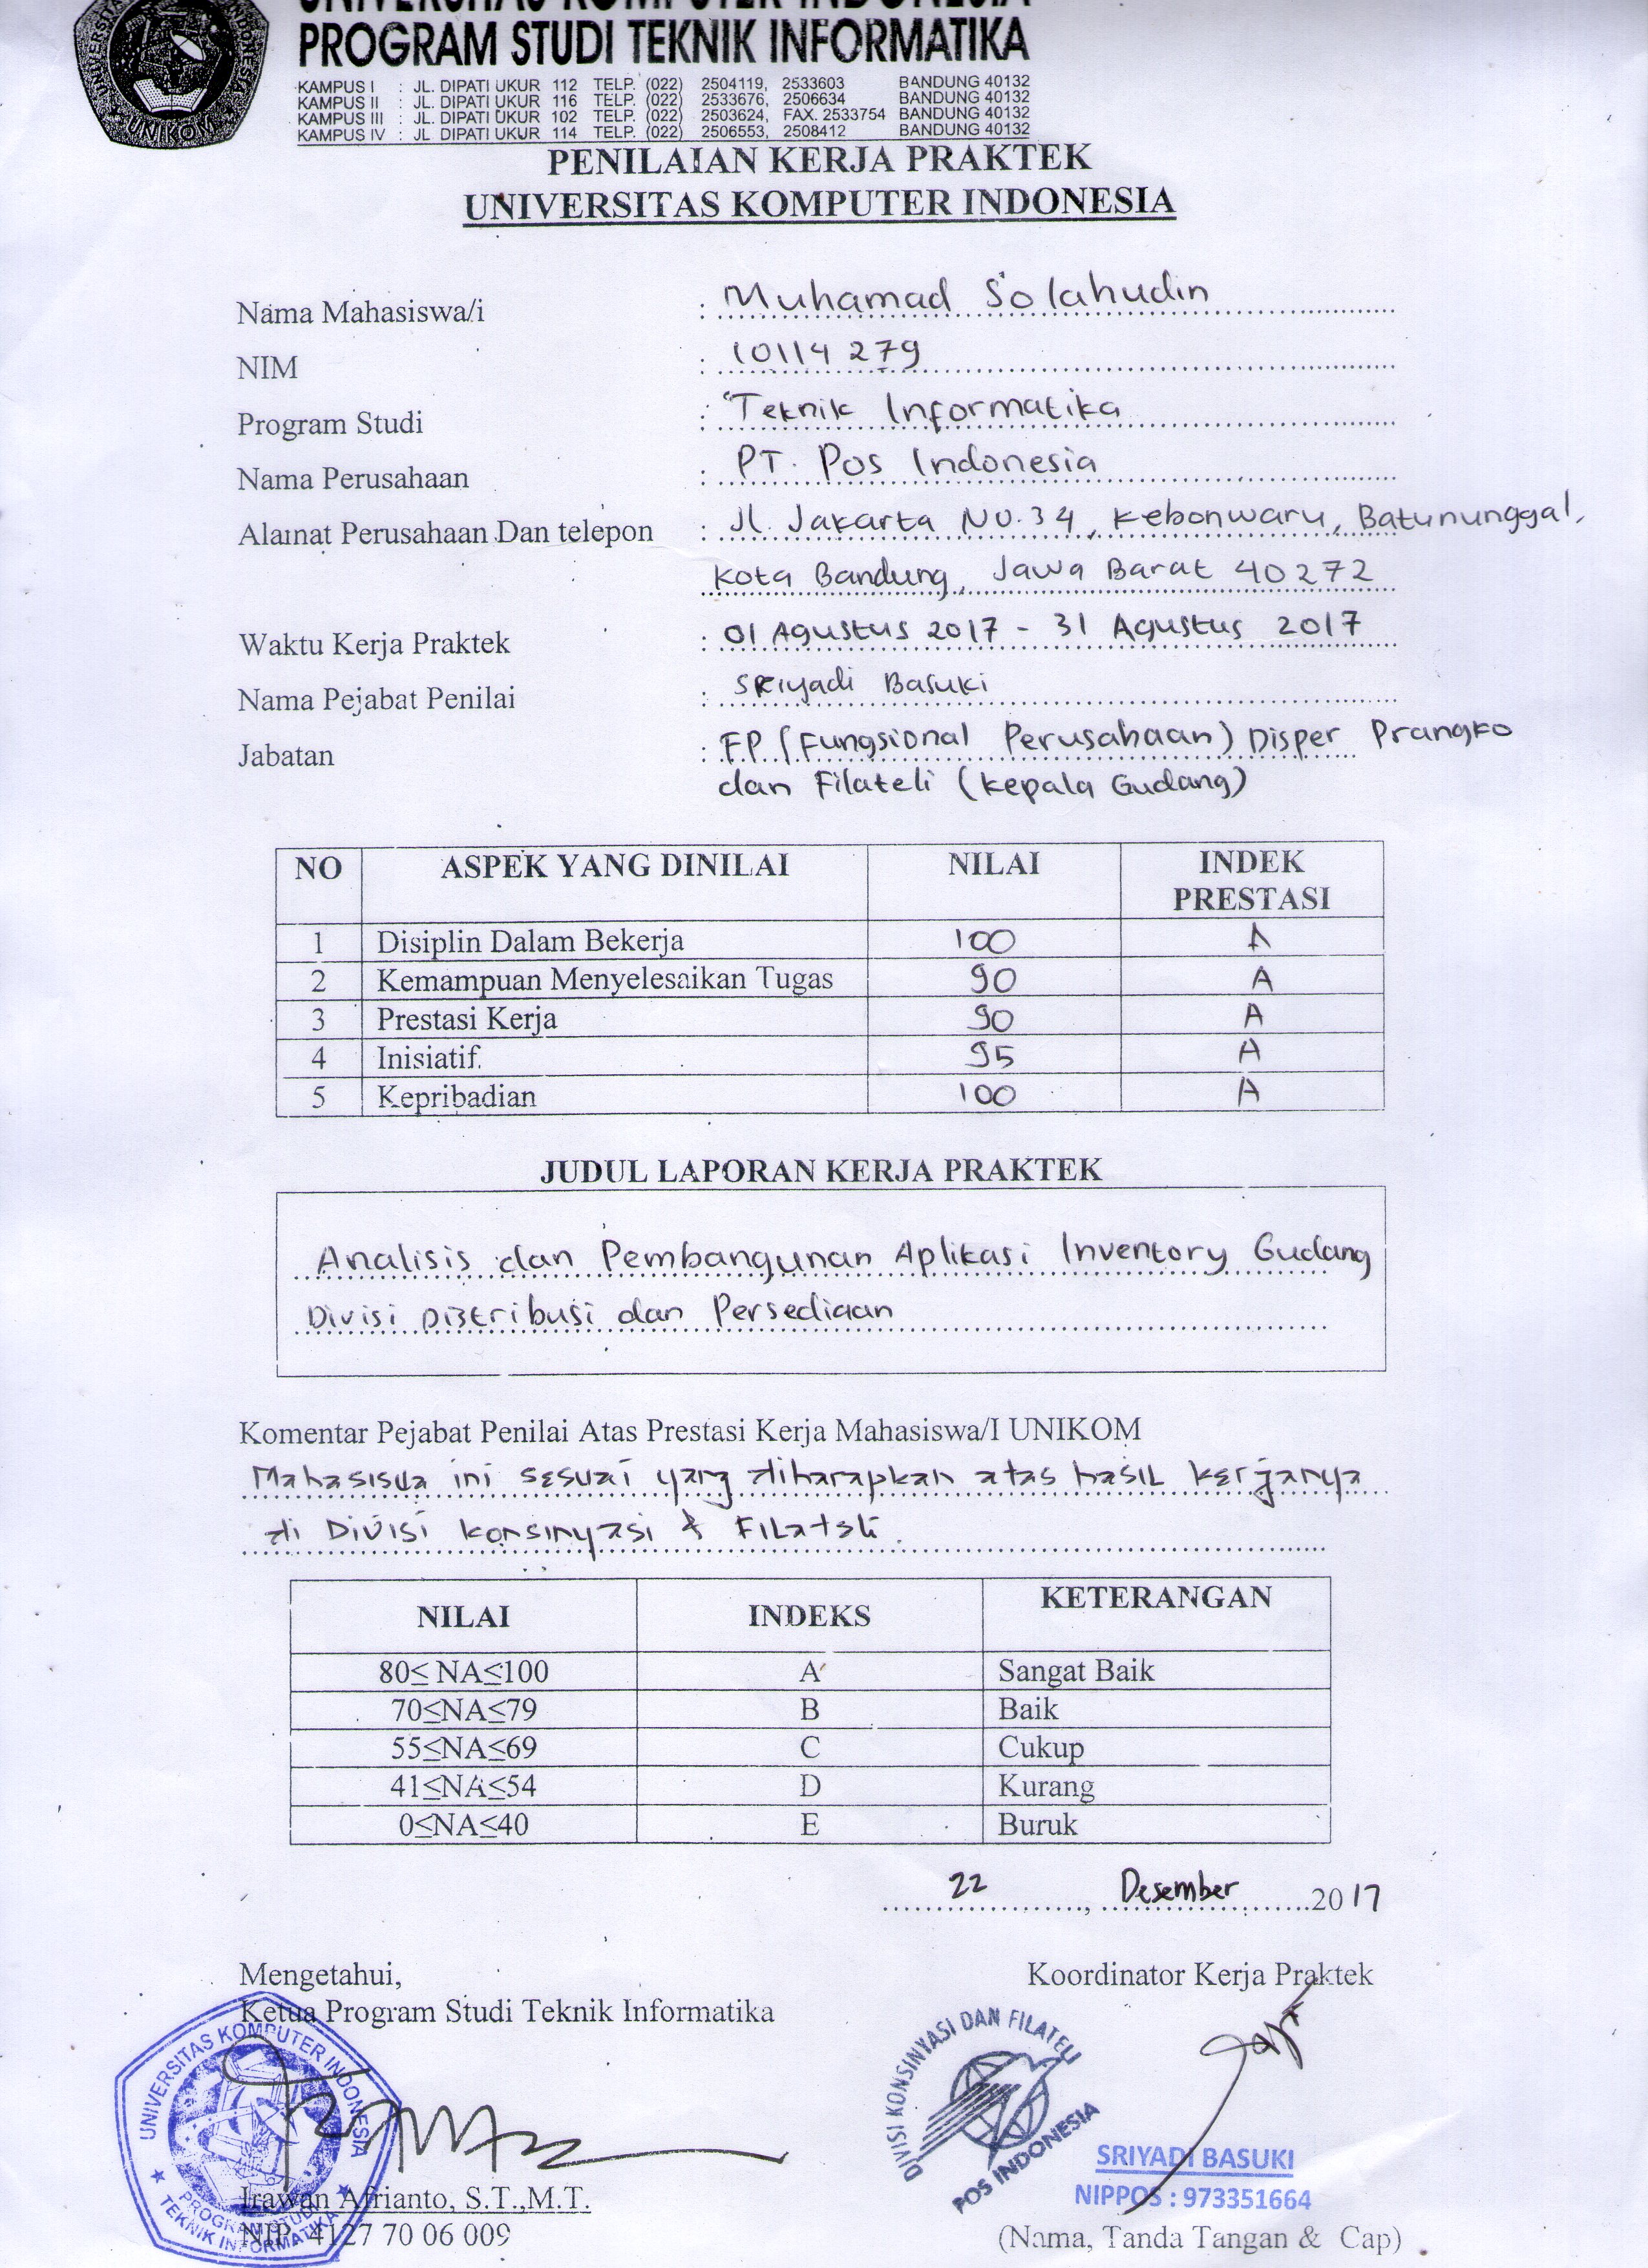 UNIVERSITAS KOMPUTER INDONESIA
PROGRAM STUDI TEKNIK INFORMATIKA
KAMPUS I : JL. DIPATI UKUR 112 TELP. (022) 2504119, 2533603 BANDUNG 40132
KAMPUS II : JL. DIPATI UKUR 116 TELP. (022) 2533676, 2506634 BANDUNG 40132
KAMPUS III : JL. DIPATI UKUR 102 TELP. (022) 2503624, FAX. 2533754 BANDUNG 40132
KAMPUS IV : JL DIPATI UKUR 114 TELP. (022) 2506553, 2508412 BANDUNG 40132
UNIKOM
PENILAIAN KERJA PRAKTEK
UNIVERSITAS KOMPUTER INDONESIA
Nama Mahasiswa/i : Muhamad Solahudin
NIM : 10114279
Program Studi : Teknik Informatika
Nama Perusahaan : PT. Pos Indonesia
Alamat Perusahaan Dan telepon : Jl. Jakarta No.34, Kebonwaru, Batununggal,
Kota Bandung, Jawa Barat 40272
Waktu Kerja Praktek : 01 Agustus 2017 - 31 Agustus 2017
Nama Pejabat Penilai : Sriyadi Basuki
Jabatan : FP (Fungsional Perusahaan) Disper Prangko
dan Filateli (Kepala Gudang)
NO ASPEK YANG DINILAI NILAI INDEK PRESTASI
1 Disiplin Dalam Bekerja 100 A
2 Kemampuan Menyelesaikan Tugas 90 A
3 Prestasi Kerja 90 A
4 Inisiatif 95 A
5 Kepribadian 100 A
JUDUL LAPORAN KERJA PRAKTEK
Analisis dan Pembangunan Aplikasi Inventory Gudang
Divisi Distribusi dan Persediaan
Komentar Pejabat Penilai Atas Prestasi Kerja Mahasiswa/I UNIKOM
Mahasiswa ini sesuai yang diharapkan atas hasil kerjanya
di Divisi Konsinyasi & Filateli.
NILAI INDEKS KETERANGAN
80≤ NA≤100 A Sangat Baik
70≤NA≤79 B Baik
55≤NA≤69 C Cukup
41≤NA≤54 D Kurang
0≤NA≤40 E Buruk
22, Desember 2017
Mengetahui, Koordinator Kerja Praktek
Ketua Program Studi Teknik Informatika
UNIVERSITAS KOMPUTER INDONESIA
PROGRAM STUDI
TEKNIK INFORMATIKA
DIVISI KONSINYASI DAN FILATELI
POS INDONESIA
SRIYADI BASUKI
NIPPOS : 973351664
Irawan Afrianto, S.T.,M.T.
NIP. 4127 70 06 009
(Nama, Tanda Tangan & Cap)